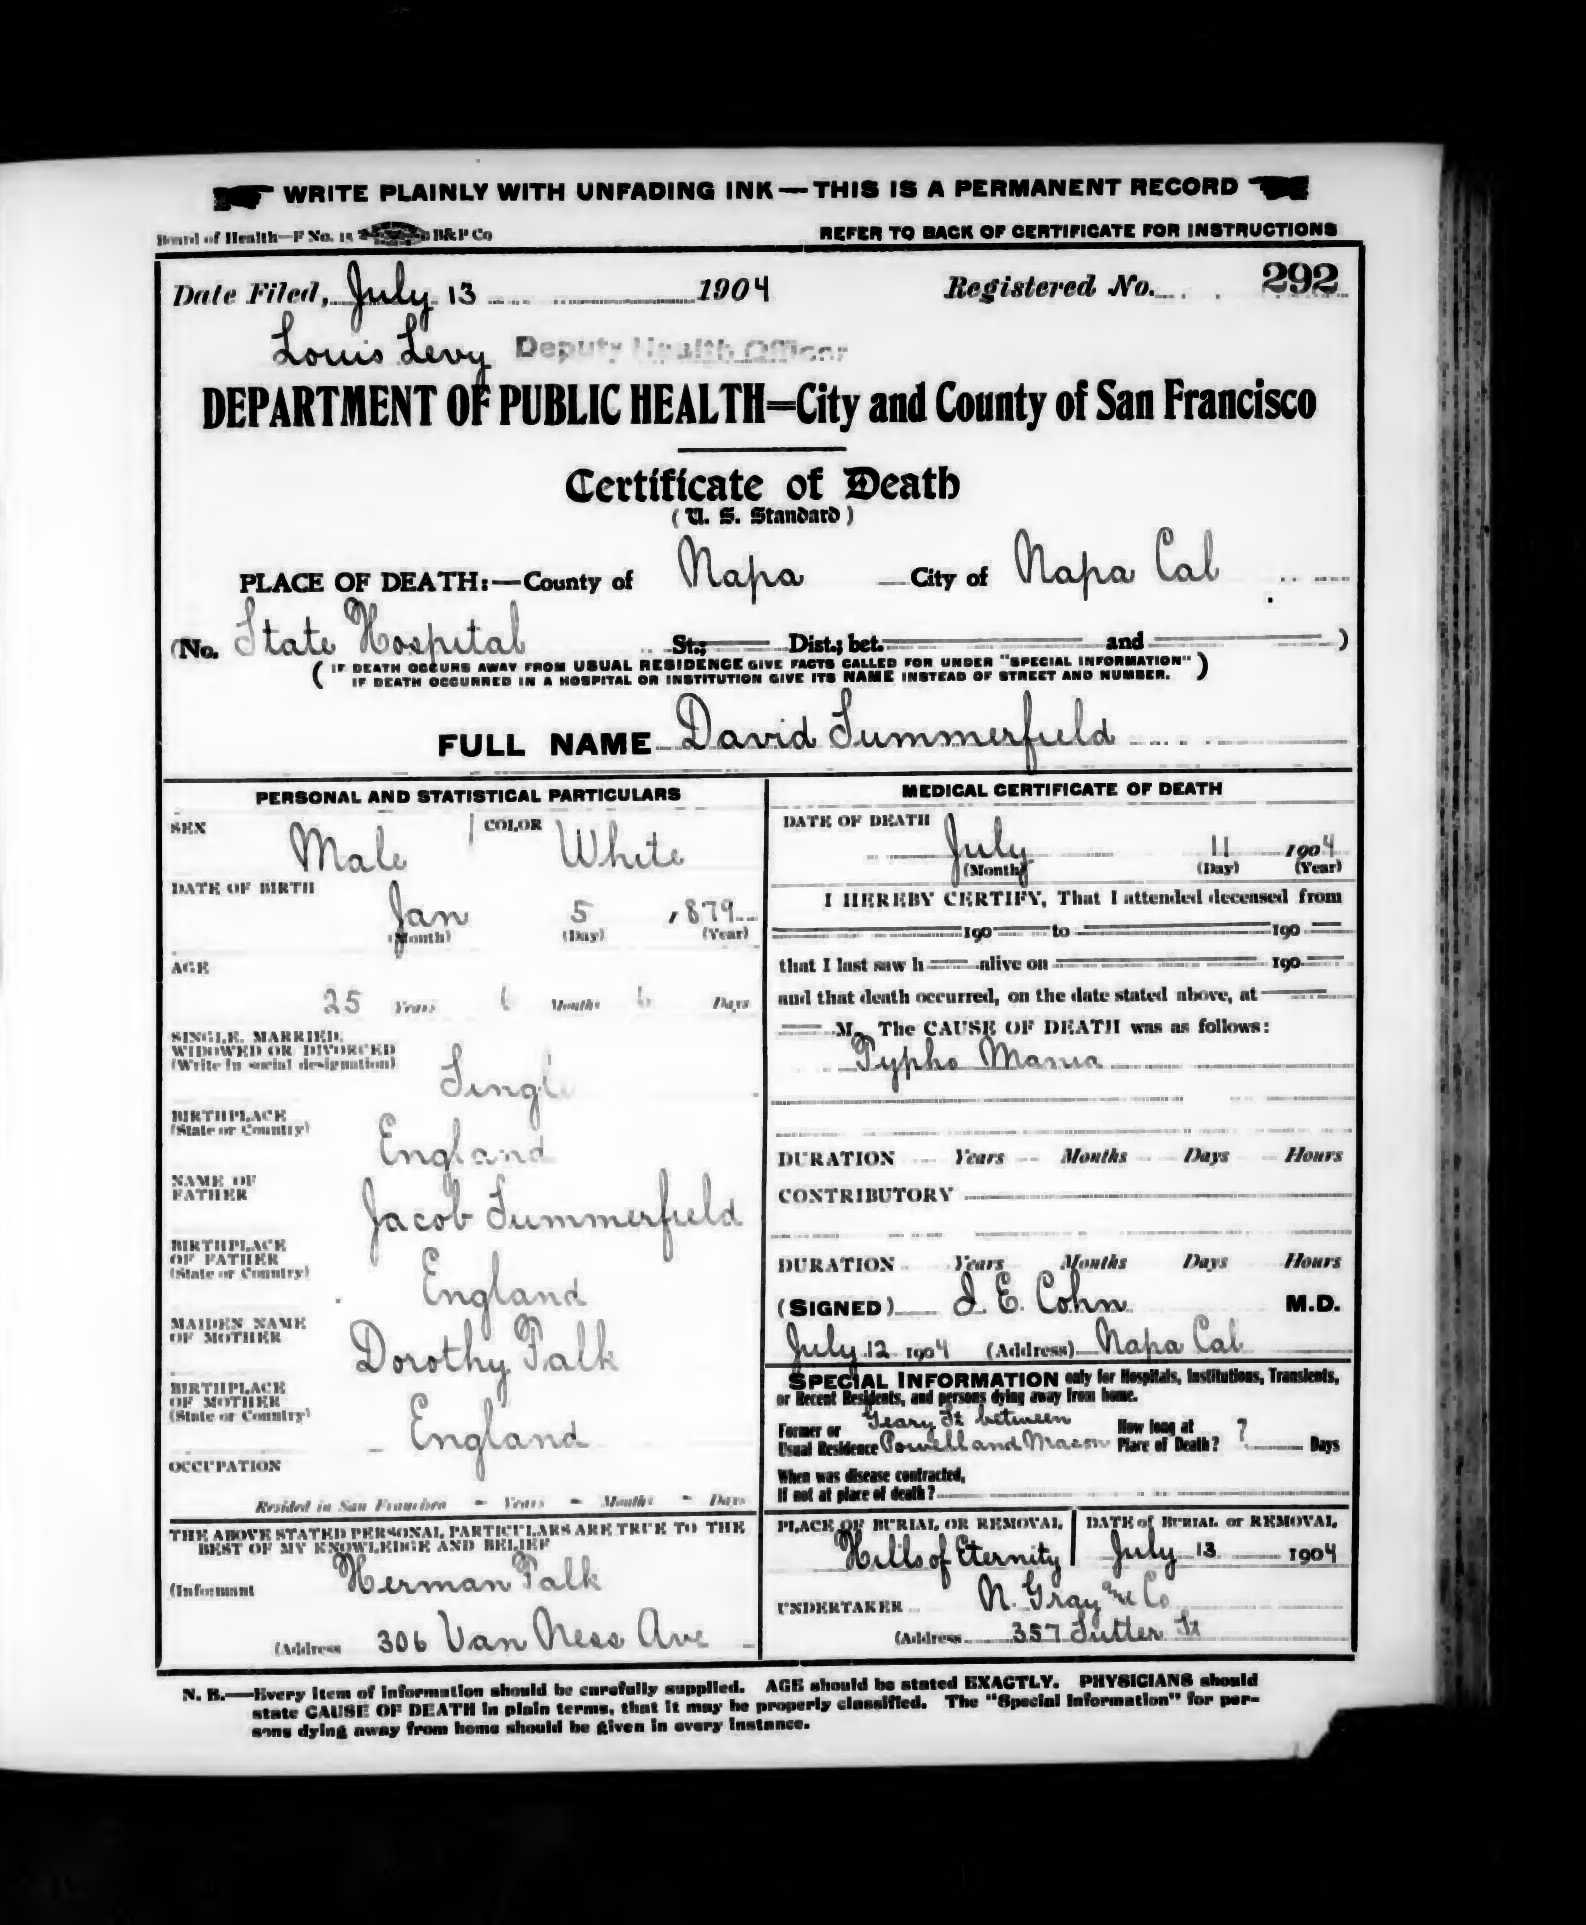 WRITE PLAINLY WITH UNFADING INK — THIS IS A PERMANENT RECORD
Board of Health—F No. 15 B&P Co
REFER TO BACK OF CERTIFICATE FOR INSTRUCTIONS
Date Filed, July 13 1904 Registered No. 292
Louis Levy Deputy Health Officer
DEPARTMENT OF PUBLIC HEALTH=City and County of San Francisco
Certificate of Death
( U. S. Standard )
PLACE OF DEATH:—County of Napa City of Napa Cal
(No. State Hospital St.; Dist.; bet. and )
( IF DEATH OCCURS AWAY FROM USUAL RESIDENCE GIVE FACTS CALLED FOR UNDER "SPECIAL INFORMATION"
IF DEATH OCCURRED IN A HOSPITAL OR INSTITUTION GIVE ITS NAME INSTEAD OF STREET AND NUMBER. )
FULL NAME David Summerfield
PERSONAL AND STATISTICAL PARTICULARS
SEX Male COLOR White
DATE OF BIRTH
Jan 5 1879
(Month) (Day) (Year)
AGE
25 Years 6 Months 6 Days
SINGLE, MARRIED,
WIDOWED OR DIVORCED
(Write in social designation)
Single
BIRTHPLACE
(State or Country)
England
NAME OF
FATHER
Jacob Summerfield
BIRTHPLACE
OF FATHER
(State or Country)
England
MAIDEN NAME
OF MOTHER
Dorothy Falk
BIRTHPLACE
OF MOTHER
(State or Country)
England
OCCUPATION
Resided in San Francisco - Years - Months - Days
THE ABOVE STATED PERSONAL PARTICULARS ARE TRUE TO THE
BEST OF MY KNOWLEDGE AND BELIEF
(Informant Herman Falk
(Address 306 Van Ness Ave
MEDICAL CERTIFICATE OF DEATH
DATE OF DEATH
July 11 1904
(Month) (Day) (Year)
I HEREBY CERTIFY, That I attended deceased from
190 to 190
that I last saw h alive on 190
and that death occurred, on the date stated above, at
M. The CAUSE OF DEATH was as follows:
Typho Mania
DURATION Years Months Days Hours
CONTRIBUTORY
DURATION Years Months Days Hours
(SIGNED) I. E. Cohn M.D.
July 12 1904 (Address) Napa Cal
SPECIAL INFORMATION only for Hospitals, Institutions, Transients,
or Recent Residents, and persons dying away from home.
Former or Geary St between How long at
Usual Residence Powell and Mason Place of Death? ? Days
When was disease contracted,
If not at place of death?
PLACE OF BURIAL OR REMOVAL DATE of BURIAL or REMOVAL
Hills of Eternity July 13 1904
UNDERTAKER N. Gray and Co
(Address 357 Sutter St
N. B.—Every item of information should be carefully supplied. AGE should be stated EXACTLY. PHYSICIANS should
state CAUSE OF DEATH in plain terms, that it may be properly classified. The "Special Information" for per-
sons dying away from home should be given in every instance.